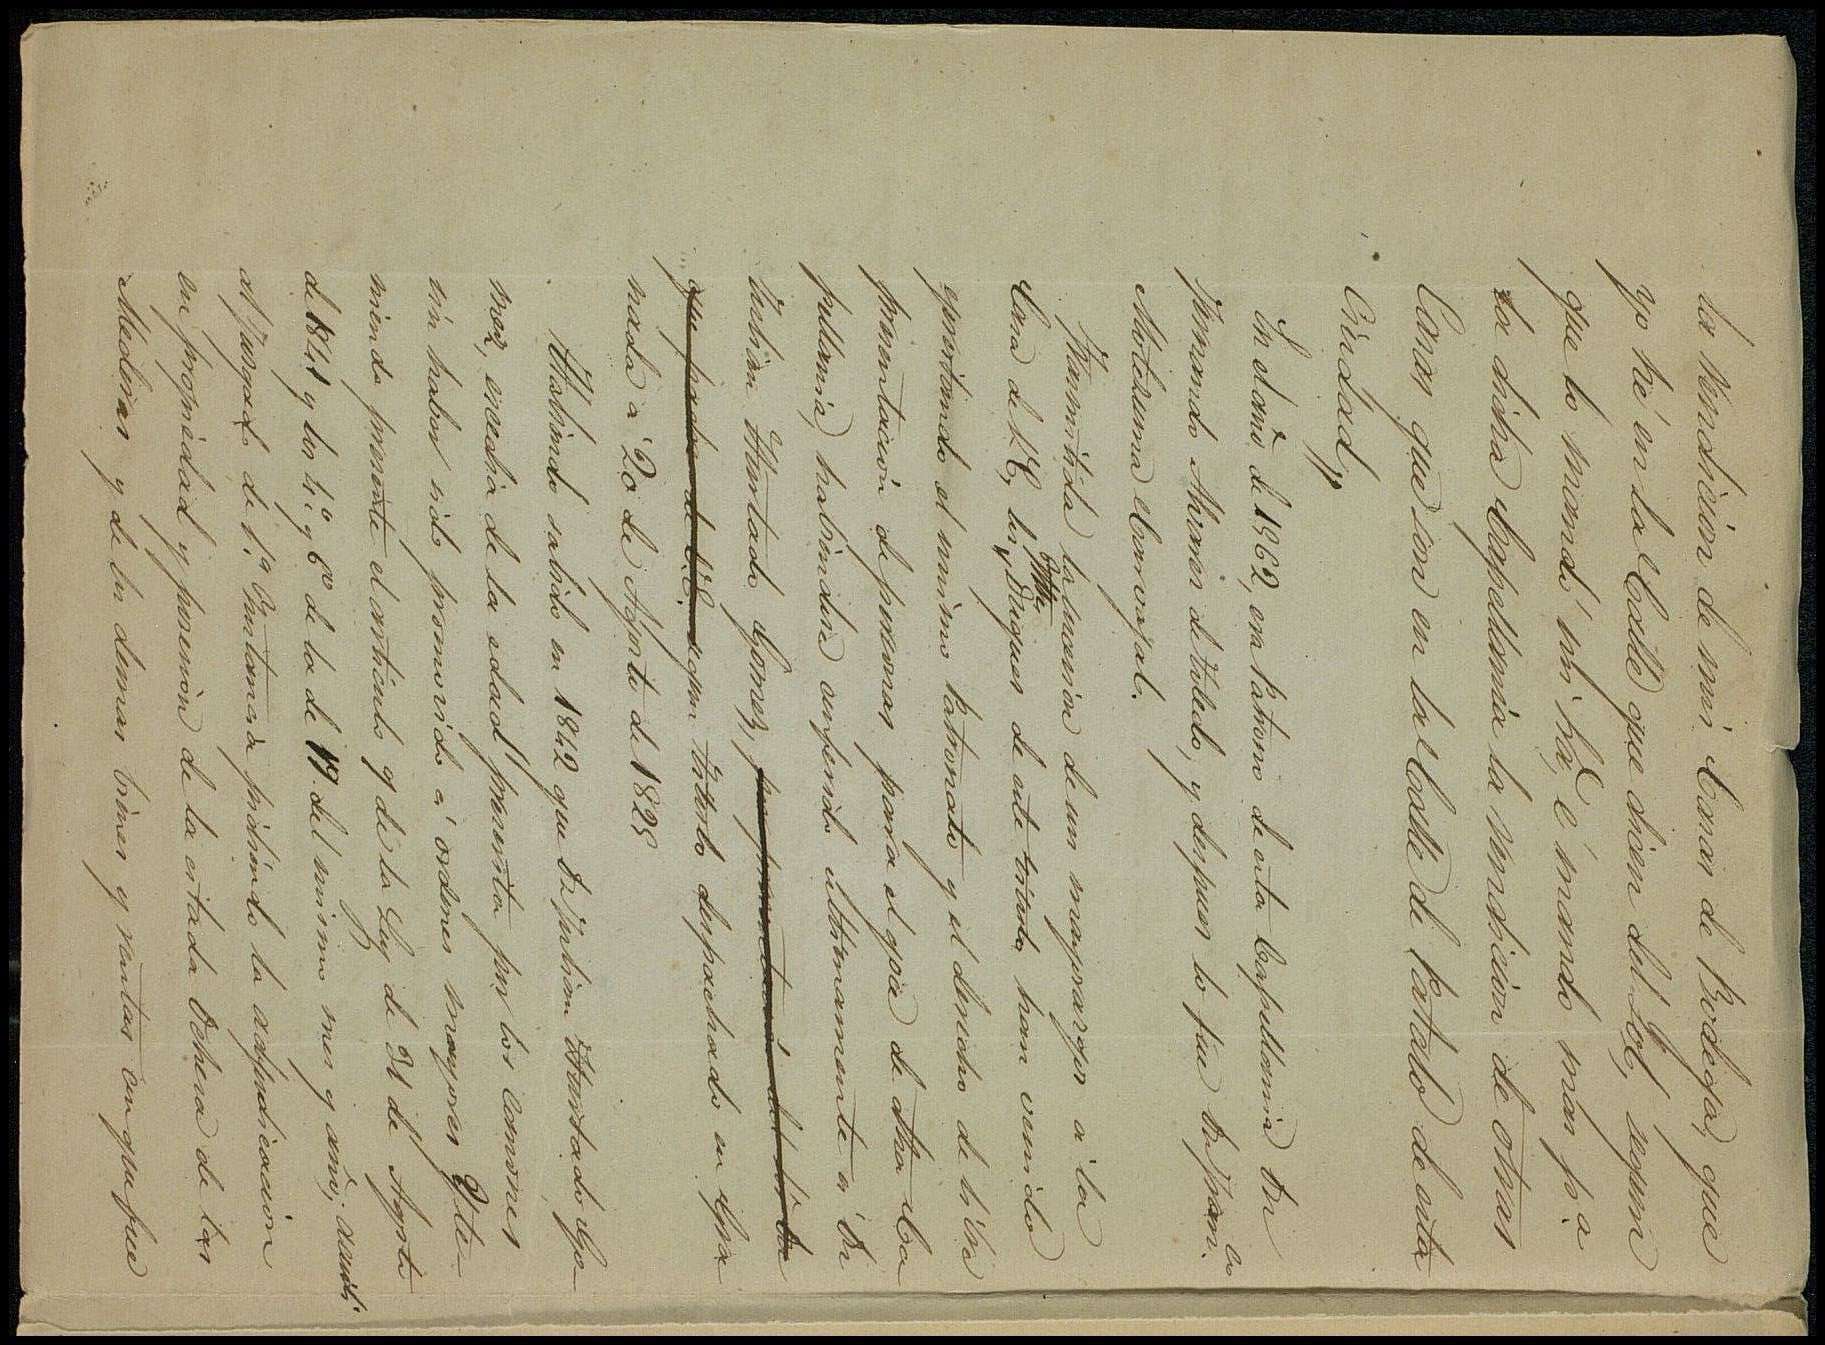 la Vendicion de mis Casas de Bodega, que
yo hé en la Calle que dicen del Sol, segun
que lo mandó mi ha, é mando mas pa
la dicha Capellania la vendicion de otras
Casas que son en la Calle de Pastelo de esta
Ciudad,,
En el año de 1862, era Patrono de esta Capellania Dn
Fernando Nuñes de Toledo, y despues lo fue Dn Franco
Motezuma Carvajal.
Trasmitida la sucesion de un mayorazgo a la
Casa de V.E. los Duques de este titulo han venido
egercitando el mismo Patronato y el derecho de libre
presentacion de personas para el goce de dha Ca
pellania, habiendose conferido ultimamente á Dn
Julian Hurtado Gomez,
segun titulo despachado en Gra
nada á 20 de Agosto de 1825
Habiendo salido en 1842 que Dn Julian Hurtado Go-
mez, escedia de la edad prescrita por los canones
sin haber sido promovido á ordenes mayores y te-
niendo presente el articulo 9 de la Ley de 31 de Agosto
de 1841 y los 4º y 6º de la de 19 del mismo mes y año, acudió
al Juzgado de 1ª Instancia pidiendo la adjudicacion
en propiedad y posesion de la citada Dehesa de las
Medinas y de los demas bienes y rentas con que fue